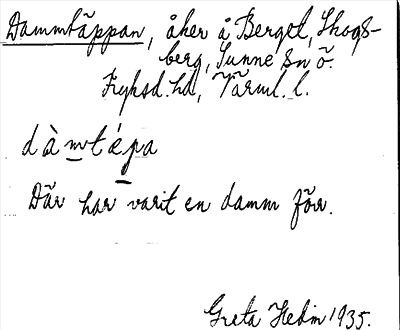 Dammtäppan, åker å Berget, Skogs-
berg, Sunne sn ö.
Fryksd. hd, Värml. l.
dàmtépa
Där har varit en damm förr.
Greta Hedin 1935.